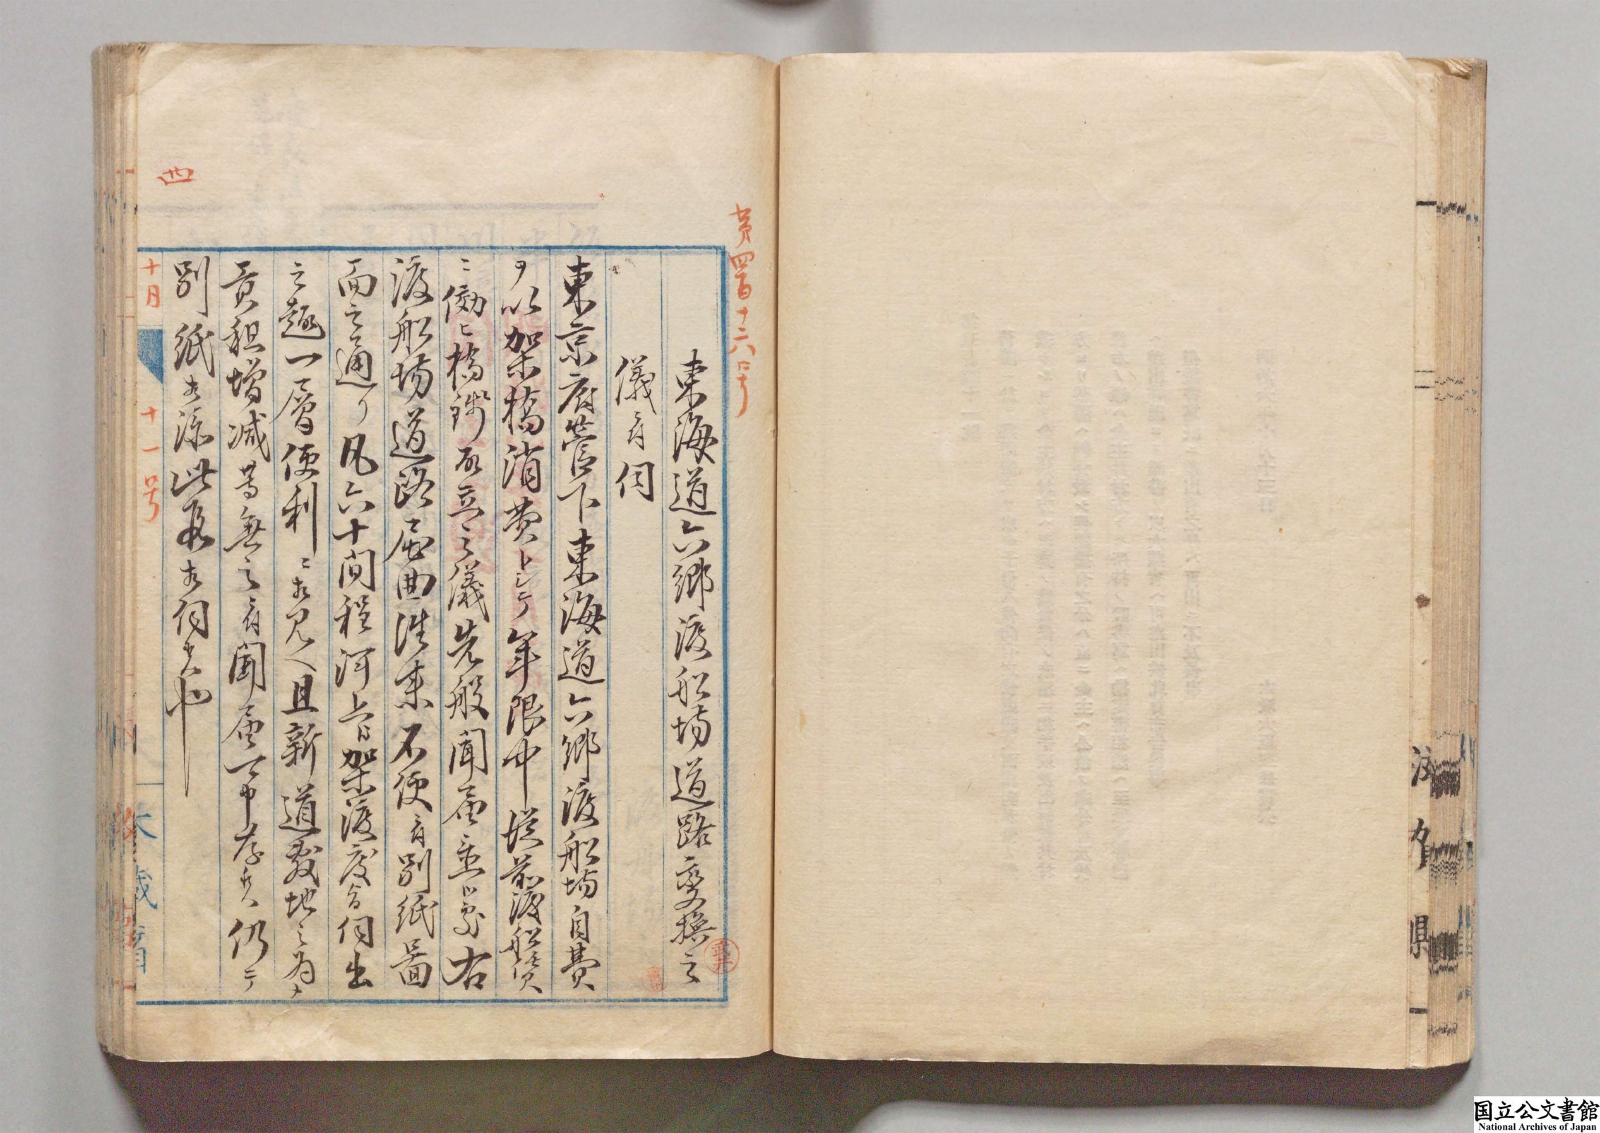 第四百十六号
東海道六郷渡船場道路変換之
儀ニ付伺
東京府管下東海道六郷渡船場自費
ヲ以架橋消費トシテ年限中従前渡船賃
ニ傚ヒ橋銭取立之儀先般聞届置候処右
渡船場道路屈曲往来不便ニ付別紙図
面之通リ凡六十間程河上ニ架渡度旨伺出
之趣一層便利ニ相見ヘ且新道敷地之為メ
貢租増減等無之ニ付聞届可申存候仍テ
別紙相添此段相伺候也
四
十月
十一号
大蔵省
県
国立公文書館
National Archives of Japan